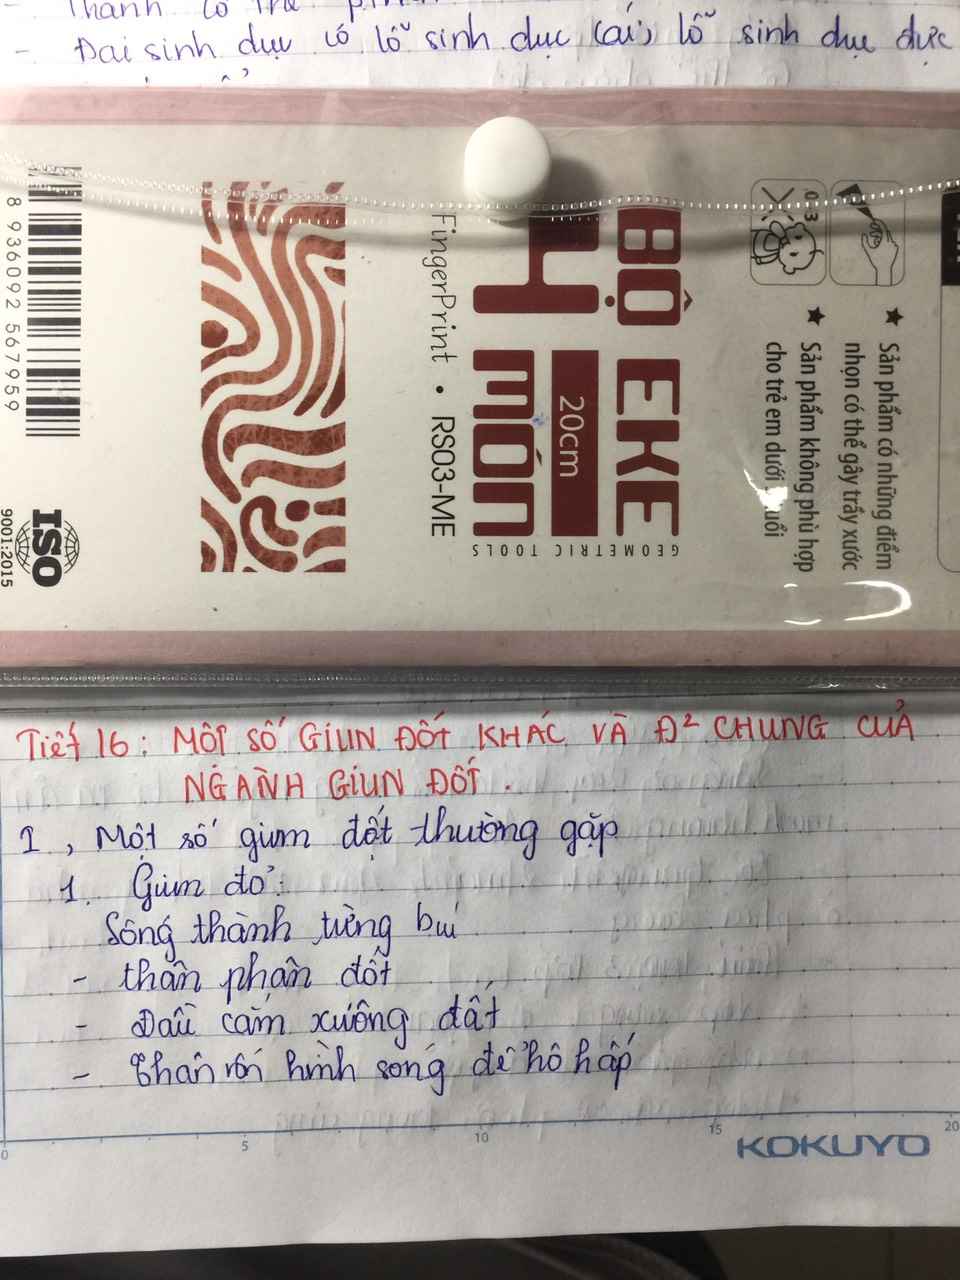 - Thành có
- Đai sinh dục có lỗ sinh dục cái, lỗ sinh dục đực
8 936092 567959
ISO
9001:2015
FingerPrint • RS03-ME
BỘ EKE
4 MÓN
20cm
GEOMETRIC TOOLS
0-3
★ Sản phẩm có những điểm
nhọn có thể gây trầy xước
★ Sản phẩm không phù hợp
cho trẻ em dưới tuổi
Tiết 16: MỘT SỐ GIUN ĐỐT KHÁC VÀ Đ² CHUNG CUẢ
NGÀNH GIUN ĐỐT.
I, Một số giun đột thường gặp
1. Giun đỏ:
Sống thành từng búi
- thân phân đốt
- Đầu cắm xuống đất
- Thân uốn hình sóng để hô hấp
0 5 10 15 20
KOKUYO